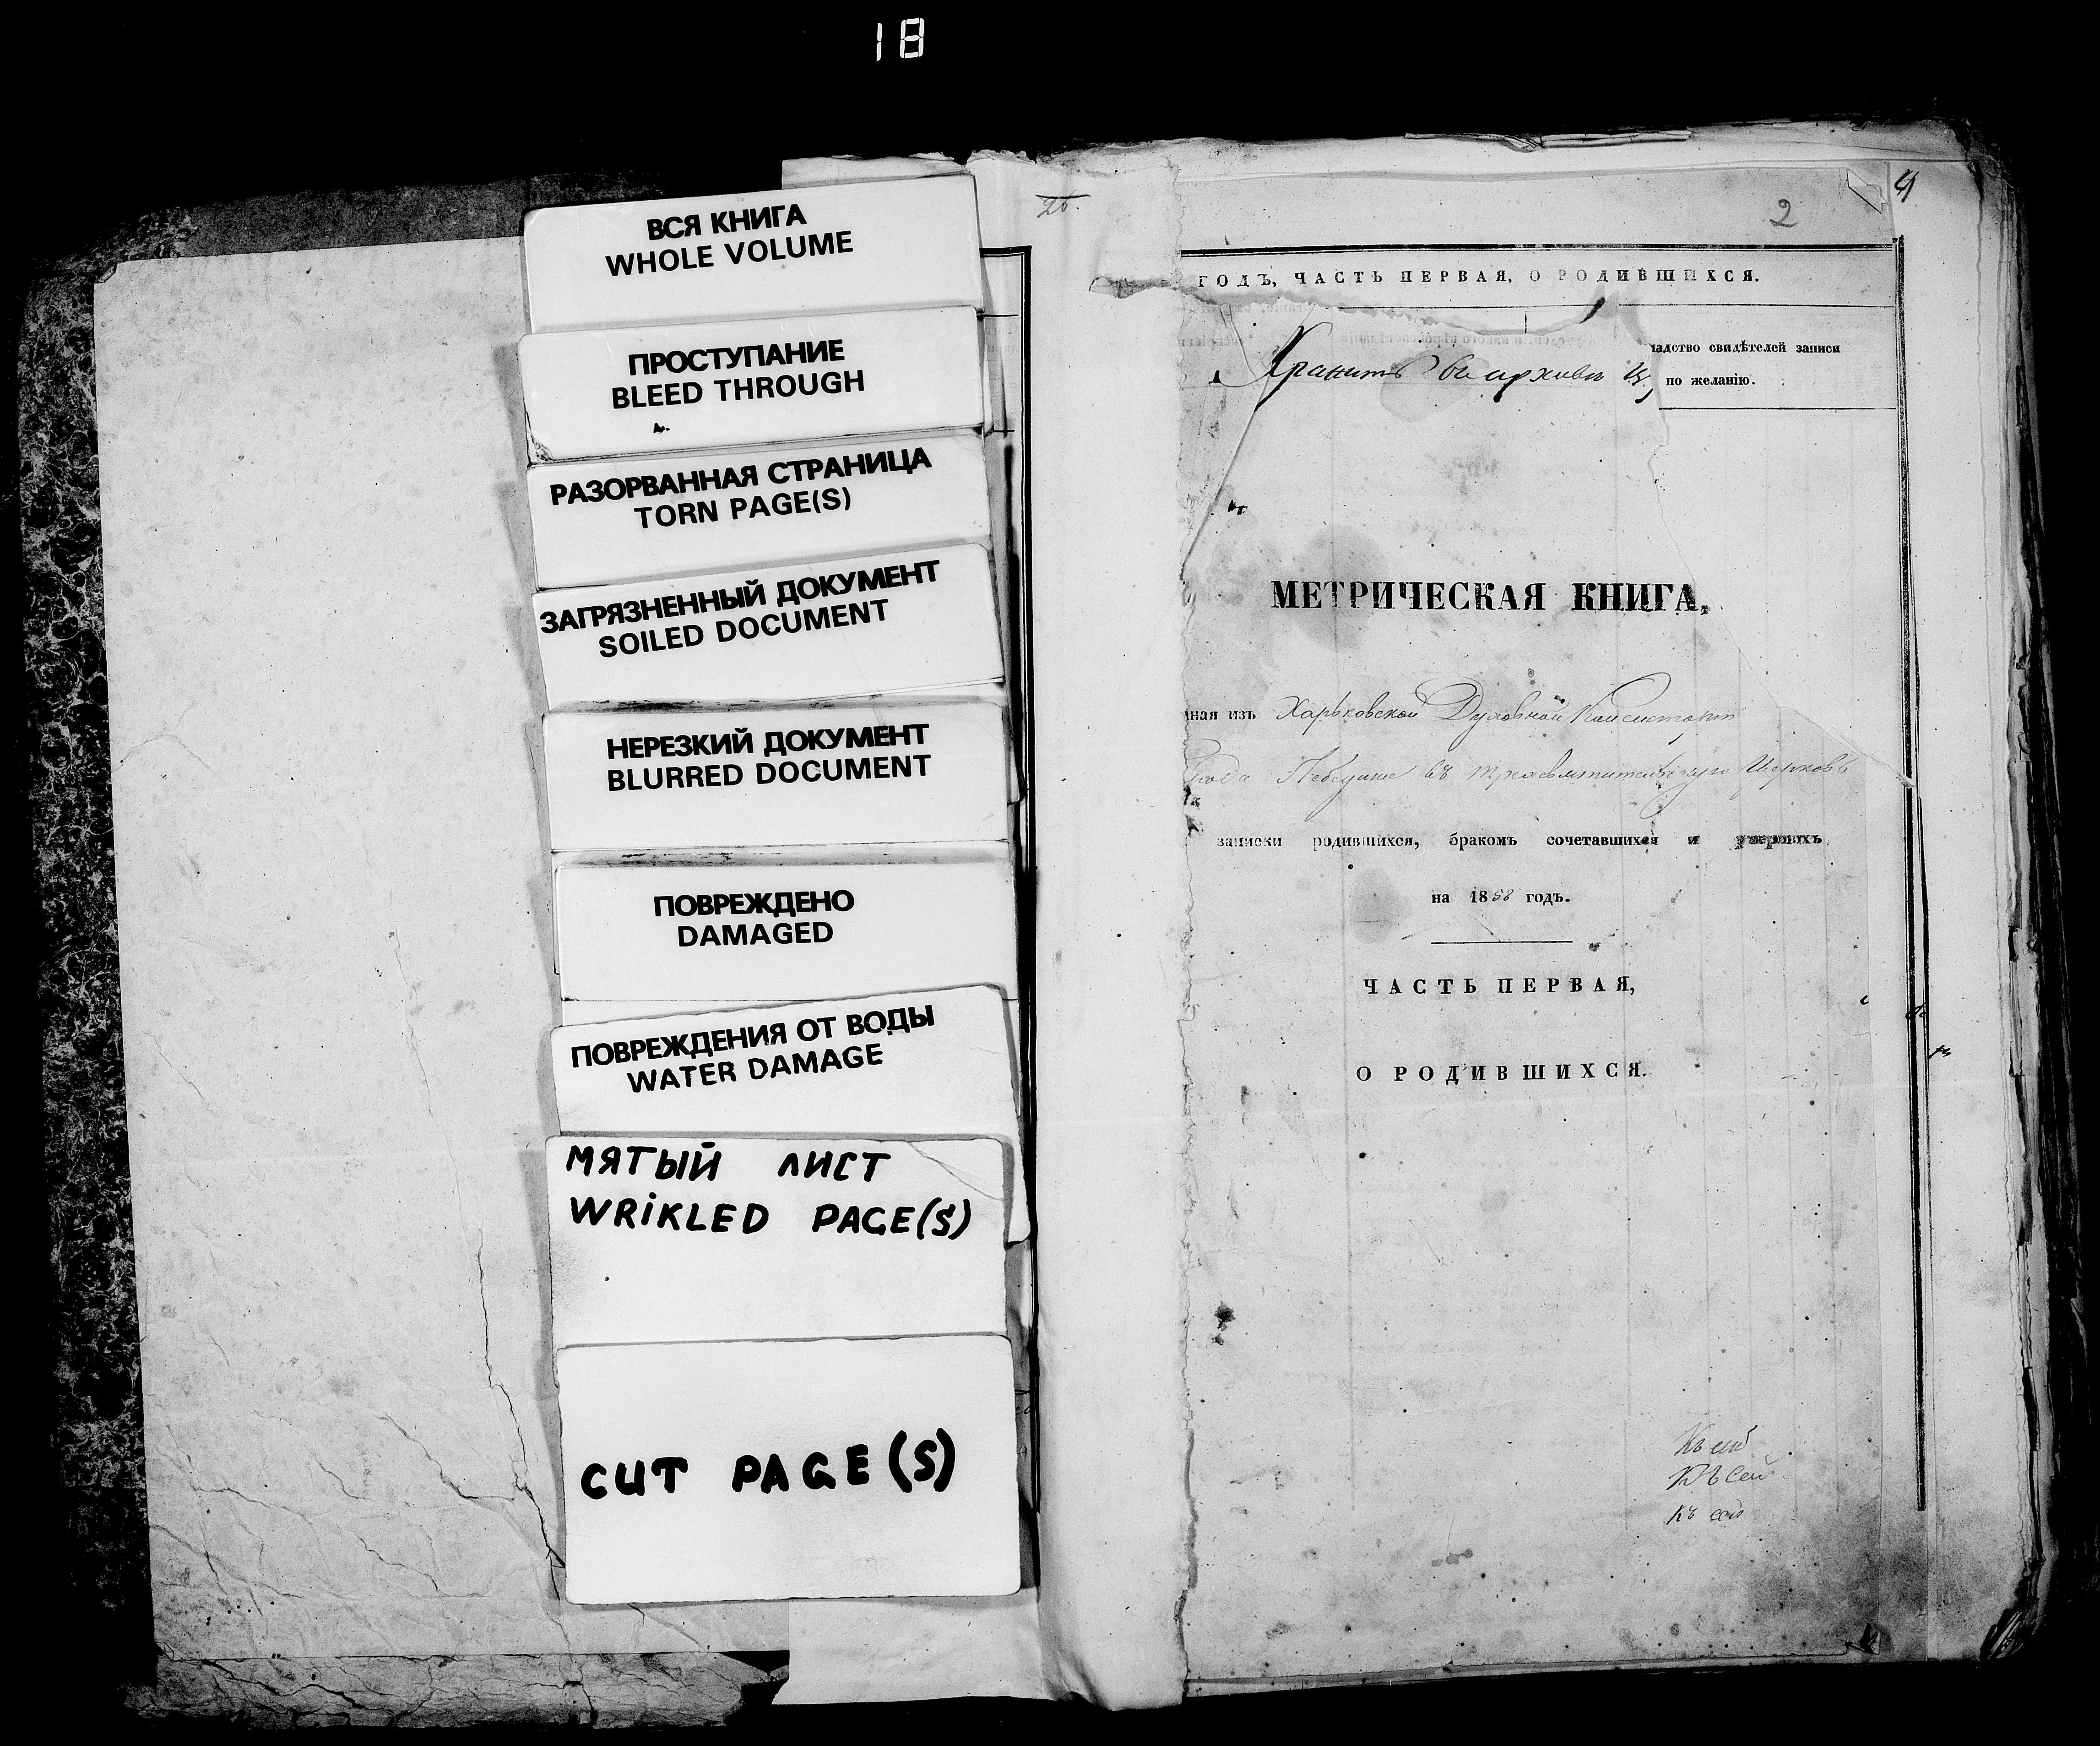 18
ВСЯ КНИГА
WHOLE VOLUME
ПРОСТУПАНИЕ
BLEED THROUGH
РАЗОРВАННАЯ СТРАНИЦА
TORN PAGE(S)
ЗАГРЯЗНЕННЫЙ ДОКУМЕНТ
SOILED DOCUMENT
НЕРЕЗКИЙ ДОКУМЕНТ
BLURRED DOCUMENT
ПОВРЕЖДЕНО
DAMAGED
ПОВРЕЖДЕНИЯ ОТ ВОДЫ
WATER DAMAGE
МЯТЫЙ ЛИСТ
WRIKLED PAGE(S)
CUT PAGE(S)
2
ГОДЪ, ЧАСТЬ ПЕРВАЯ, О РОДИВШИХСЯ.
свидѣтелей записи
Хранить въ архивѣ
по желанію.
МЕТРИЧЕСКАЯ КНИГА,
ная изъ Харьковской Духовной Консисторіи
въ Церковь
записки родившихся, бракомъ сочетавшихся и умершихъ
на 1858 годъ.
ЧАСТЬ ПЕРВАЯ,
О РОДИВШИХСЯ.
Къ сей